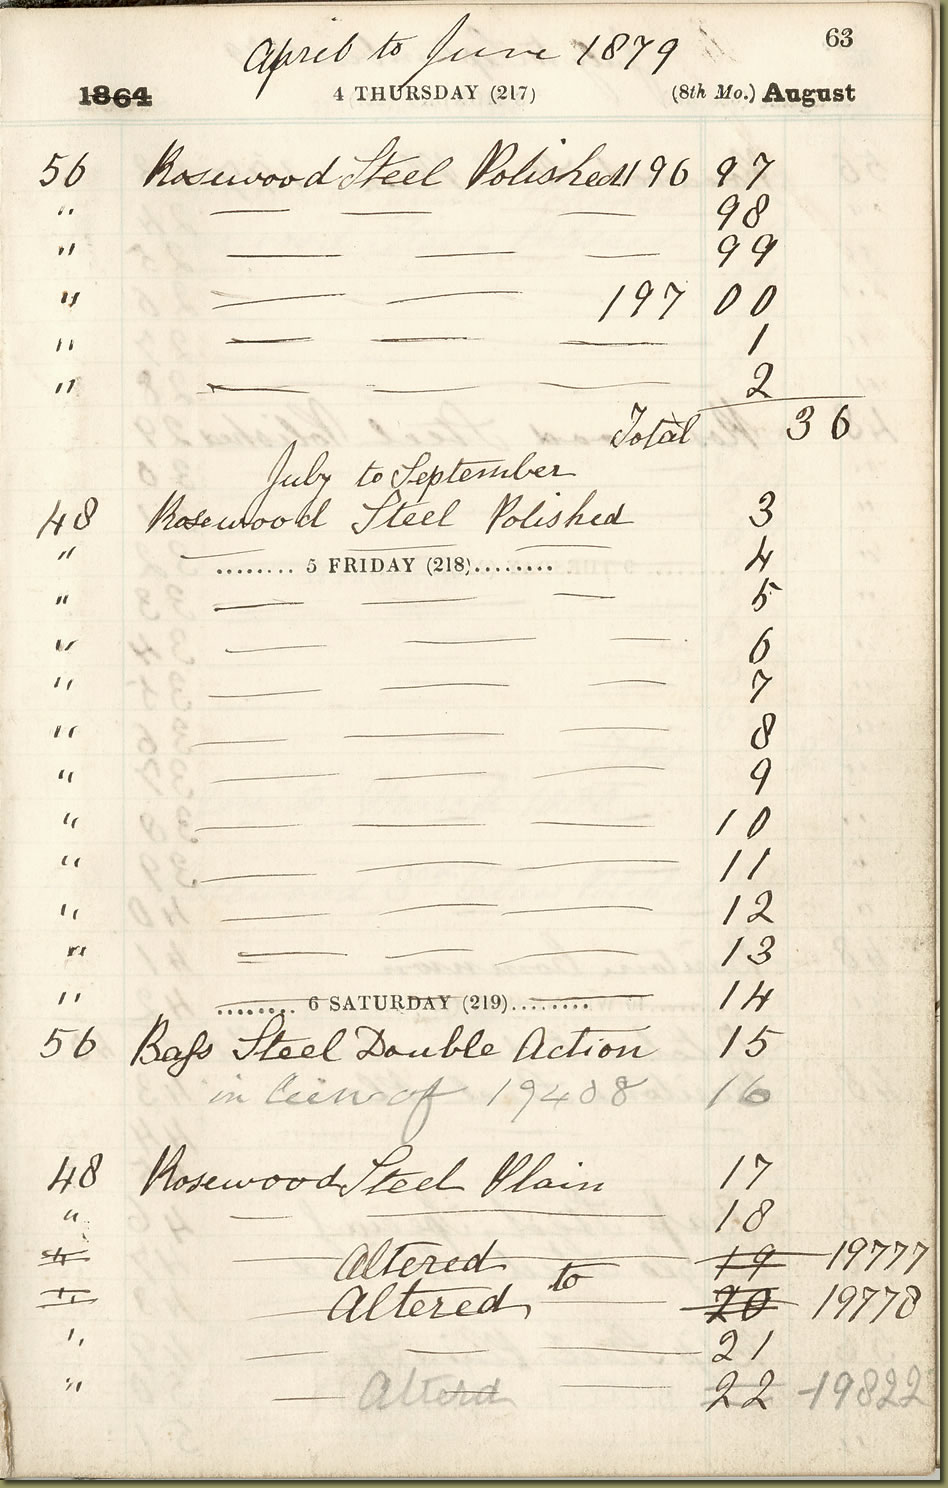 April to June 1879
63
1864 4 THURSDAY (217) (8th Mo.) August
56 Rosewood Steel Polished 196 97
" — — — 98
" — — — 99
" — — 197 00
" — — — 1
" — — — 2
Total 36
July to September
48 Rosewood Steel Polished 3
" — — — 4
........ 5 FRIDAY (218)........
" — — — 5
" — — — 6
" — — — 7
" — — — 8
" — — — 9
" — — — 10
" — — — 11
" — — — 12
" — — — 13
" — 14
........ 6 SATURDAY (219)........
56 Bass Steel Double Action 15
in lieu of 19408 16
48 Rosewood Steel Plain 17
" — — 18
" — Altered — 19 — 19777
" — Altered to — 20 — 19778
" — — — 21
" — Alterd — 22 - 19822